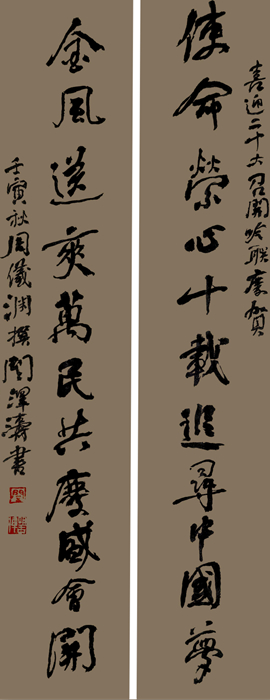 喜迎二十大召開吟聯慶賀
使命縈心十載追尋中國夢
金風送爽萬民共慶盛會開
壬寅秋周儀淵撰渾濤書